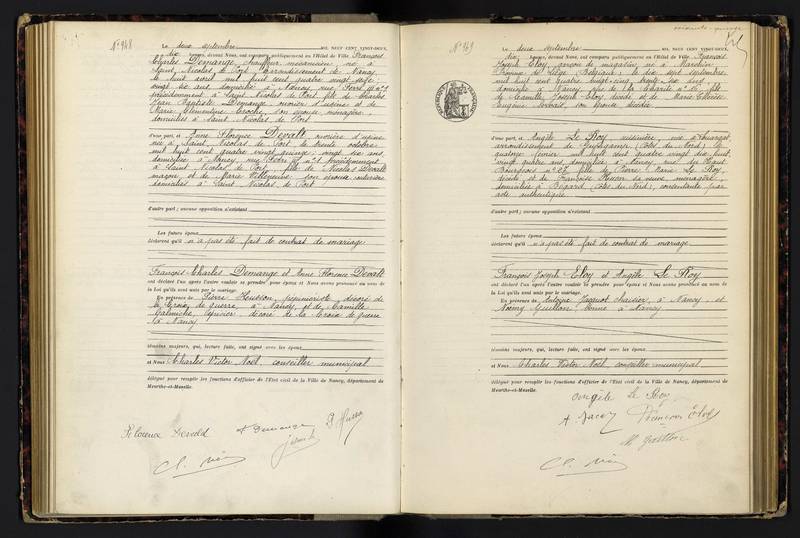 N° 948
Le deux septembre MIL NEUF CENT VINGT-DEUX,
dix heures, devant Nous, ont comparu publiquement en l'Hôtel de Ville François
Charles Demange, chauffeur mécanicien, né à
Saint Nicolas de Port, arrondissement de Nancy,
le huit avril mil huit cent quatre vingt
vingt ans, domicilié à Nancy, rue n° 1
précédemment à Saint Nicolas de Port, fils de Charles
Jean Baptiste Demange, ouvrier d'usine et de
Marie Clémentine son épouse, ménagère,
domiciliés à Saint Nicolas de Port
d'une part, et Anne Florence Devalt ouvrière d'usine
née à Saint Nicolas de Port, le trente octobre
mil huit cent quatre vingt quinze, vingt six ans,
domiciliée à Nancy, rue n° 1 précédemment
à Saint Nicolas de Port, fille de Nicolas Devalt
maçon, et de Marie Villemine son épouse
domiciliés à Saint Nicolas de Port
d'autre part; aucune opposition n'existant
Les futurs époux
déclarent qu'il n'a pas été fait de contrat de mariage
François Charles Demange et Anne Florence Devalt
ont déclaré l'un après l'autre vouloir se prendre pour époux et Nous avons prononcé au nom de
la Loi qu'ils sont unis par le mariage.
En présence de Pierre Husson, pépiniériste, décoré de
la Croix de guerre à Nancy, et de Camille
Galmiche, décoré de la Croix de guerre
à Nancy
témoins majeurs, qui, lecture faite, ont signé avec les époux
et Nous Charles Victor Noël, conseiller municipal
délégué pour remplir les fonctions d'officier de l'Etat civil de la Ville de Nancy, département de
Meurthe-et-Moselle.
Florence Devald
Demange
P. Husson
N° 949
Le deux septembre MIL NEUF CENT VINGT-DEUX,
dix heures, devant Nous, ont comparu publiquement en l'Hôtel de Ville François
Joseph Eloy, garçon de magasin, né à Marchin
Province de Liège Belgique, le dix sept septembre
mil huit cent quatre vingt cinq, trente six ans,
domicilié à Nancy, rue de la Charité n° fils
de Camille Joseph Eloy décédé et de Marie Thérèse
Eugénie son épouse décédée
d'une part, et Angèle Le Roy cuisinière, née à Louargat,
arrondissement de Guingamp (Côtes du Nord) le
quatorze février mil huit cent quatre vingt dix huit,
vingt quatre ans, domiciliée à Nancy, rue du Haut
Bourgeois n° fille de Pierre Marie Le Roy,
décédé et de Françoise sa veuve, ménagère
domiciliée à Bégard (Côtes du Nord), consentante par
acte authentique
d'autre part; aucune opposition n'existant
Les futurs époux
déclarent qu'il n'a pas été fait de contrat de mariage
François Joseph Eloy et Angèle Le Roy
ont déclaré l'un après l'autre vouloir se prendre pour époux et Nous avons prononcé au nom de
la Loi qu'ils sont unis par le mariage.
En présence de Antoine Jacquot chaisier, à Nancy, et
Noémy bonne à Nancy
témoins majeurs, qui, lecture faite, ont signé avec les époux
et Nous Charles Victor Noël, conseiller municipal
délégué pour remplir les fonctions d'officier de l'Etat civil de la Ville de Nancy, département de
Meurthe-et-Moselle.
Angèle Le Roy
François Eloy